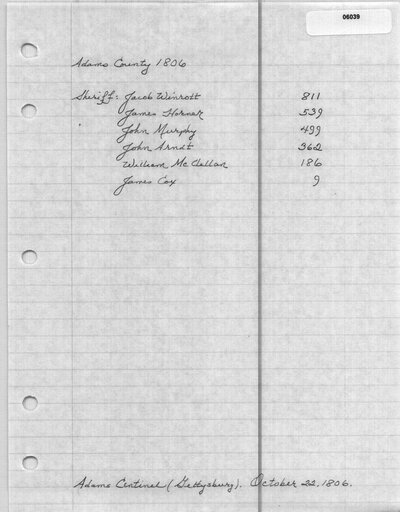 06039
Adams County 1806
Sheriff: Jacob Winrott 811
James Horner 539
John Murphy 499
John Arndt 362
William McClellan 186
James Cox 9
Adams Centinel (Gettysburg). October 22, 1806.